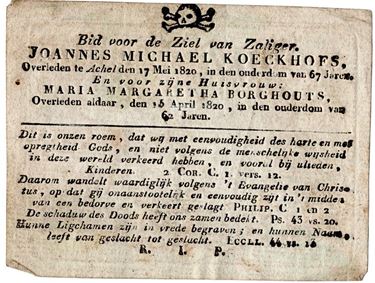 Bid voor de Ziel van Zaliger.
JOANNES MICHAEL KOECKHOFS,
Overleden te Achel den 17 Mei 1820, in den ouderdom van 67 Jaren.
En voor zijne Huisvrouw:
MARIA MARGARETHA BORGHOUTS,
Overleden aldaar, den 15 April 1820, in den ouderdom van
62 Jaren.
Dit is onzen roem, dat wy met eenvoudigheid des harte en met
opregtheid Gods, en niet volgens de menschelyke wijsheid
in deze wereld verkeerd hebben, en vooral bij ulieden,
Kinderen. 2 Cor. C. 1. vers. 12.
Daarom wandelt waardiglijk volgens 't Evangelie van Chris-
tus, op dat gij onaanstootelijk en eenvoudig zijt in 't midden
van een bedorve en verkeert geslagt PHILIP. C 1 en 2
De schaduw des Doods heeft ons zamen bedekt. Ps. 43 vs. 20.
Hunne Ligchamen zijn in vrede begraven; en hunnen Naam
leeft van geslacht tot geslacht. ECCLE. 44 vs.
R. I. P.